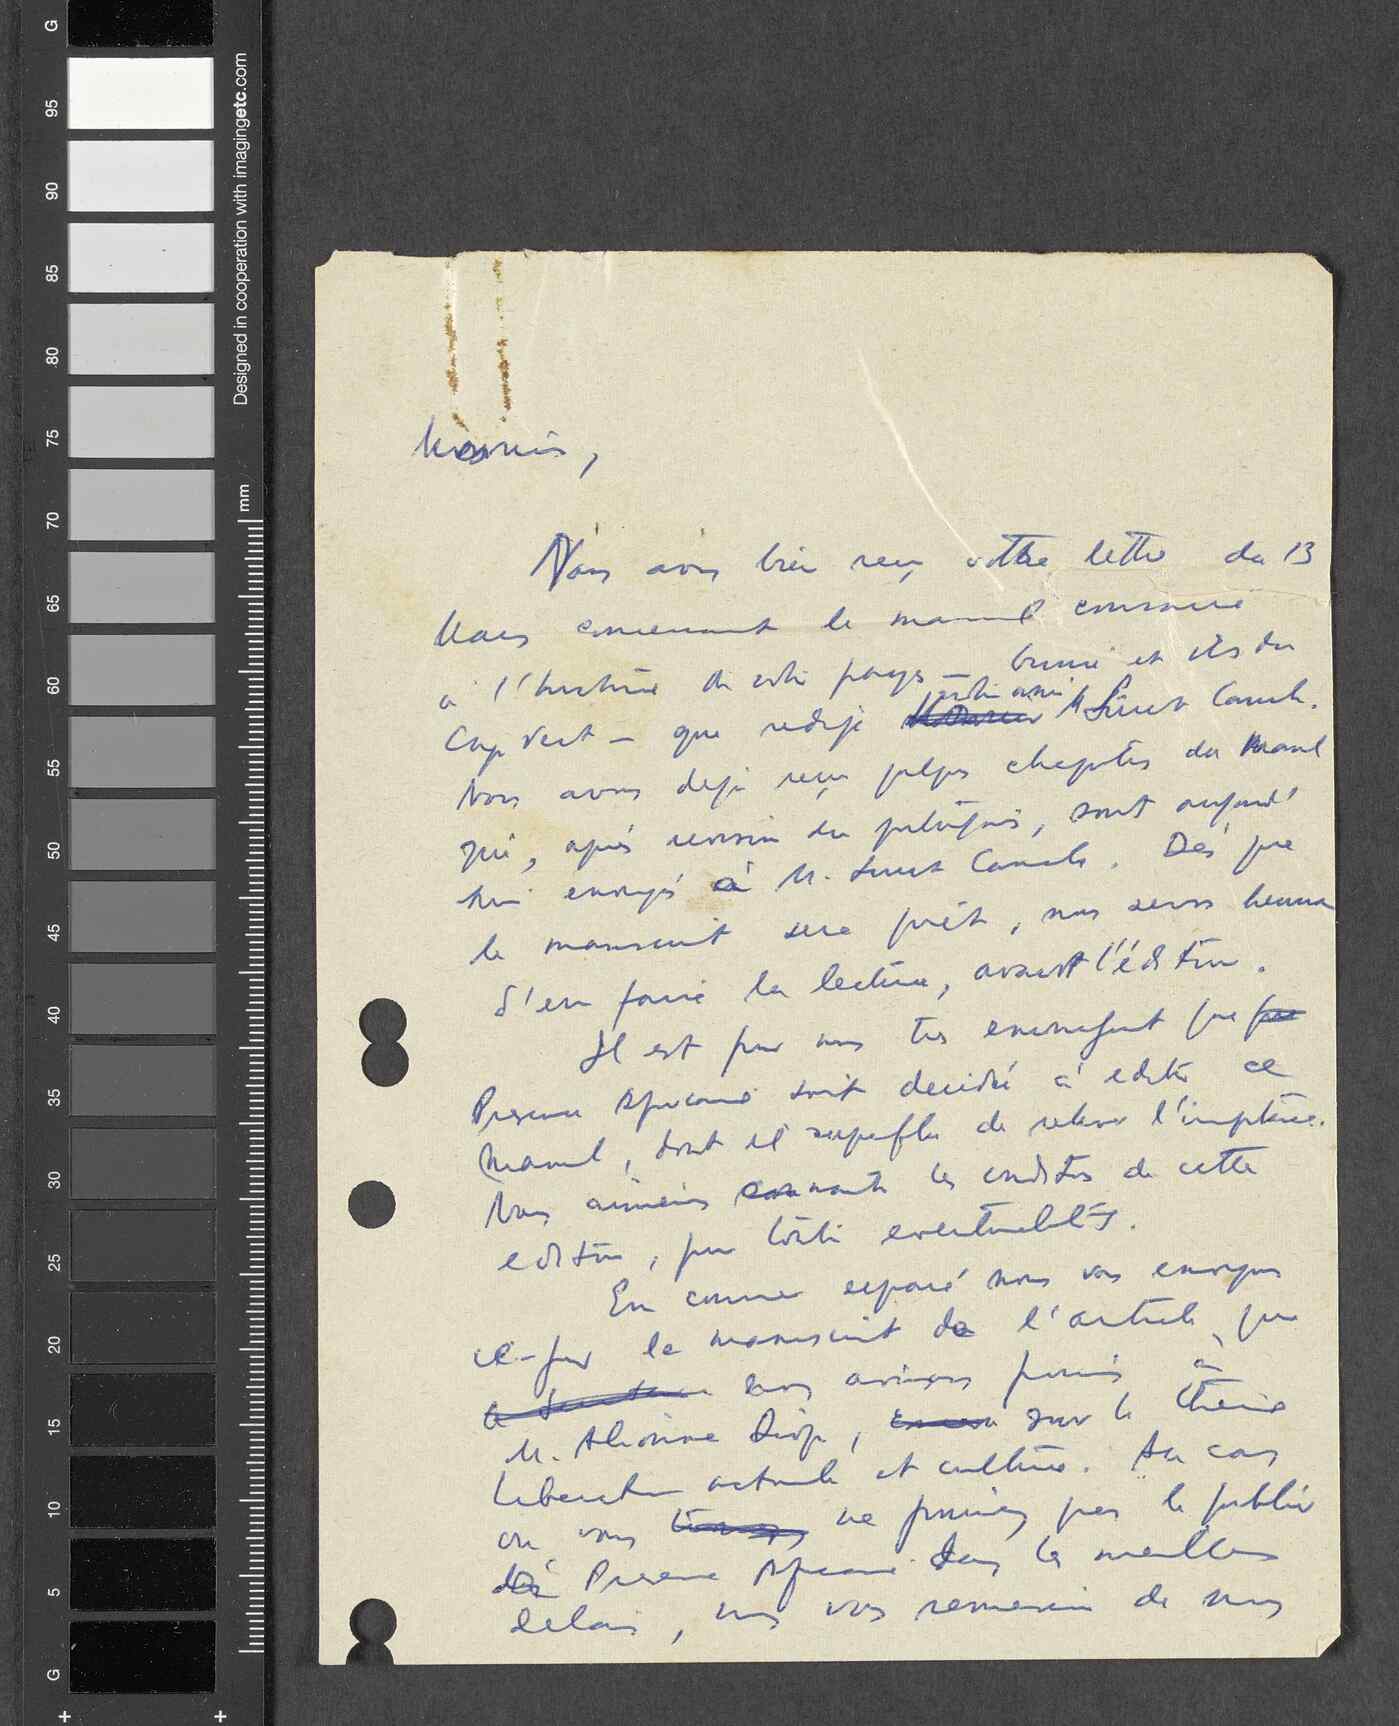 Monsieur,
Nous avons bien reçu votre lettre du 13
Mars concernant le manuel consacré
à l'histoire de votre pays — Guinée et îles du
Cap Vert — que rédige notre ami M. Suret Canale.
Nous avons déjà reçu quelques chapitres du Manuel
qui, après revision du portugais, sont aujourd'
hui envoyés à M. Suret Canale. Dès que
le manuscrit sera prêt, nous serons heureux
d'en faire la lecture, avant l'édition.
Il est pour nous très encourageant que
Presence Africaine soit decidée à editer ce
Manuel, dont il superflu de relever l'importance.
Nous aimerions connaitre les conditions de cette
edition, pour toute eventualité.
En courrier separé nous vous envoyons
le manuscrit de l'article, que
nous avions promis à
M. Alioune Diop, sur le thème
Liberation nationale et culture. Au cas
où vous ne pourriez pas le publier
Presence Africaine dans les meilleurs
delais, nous vous remercions de nous
G
95
90
85
80
75
70
65
60
55
50
45
40
35
30
25
20
15
10
5
G
Designed in cooperation with imagingetc.com
mm